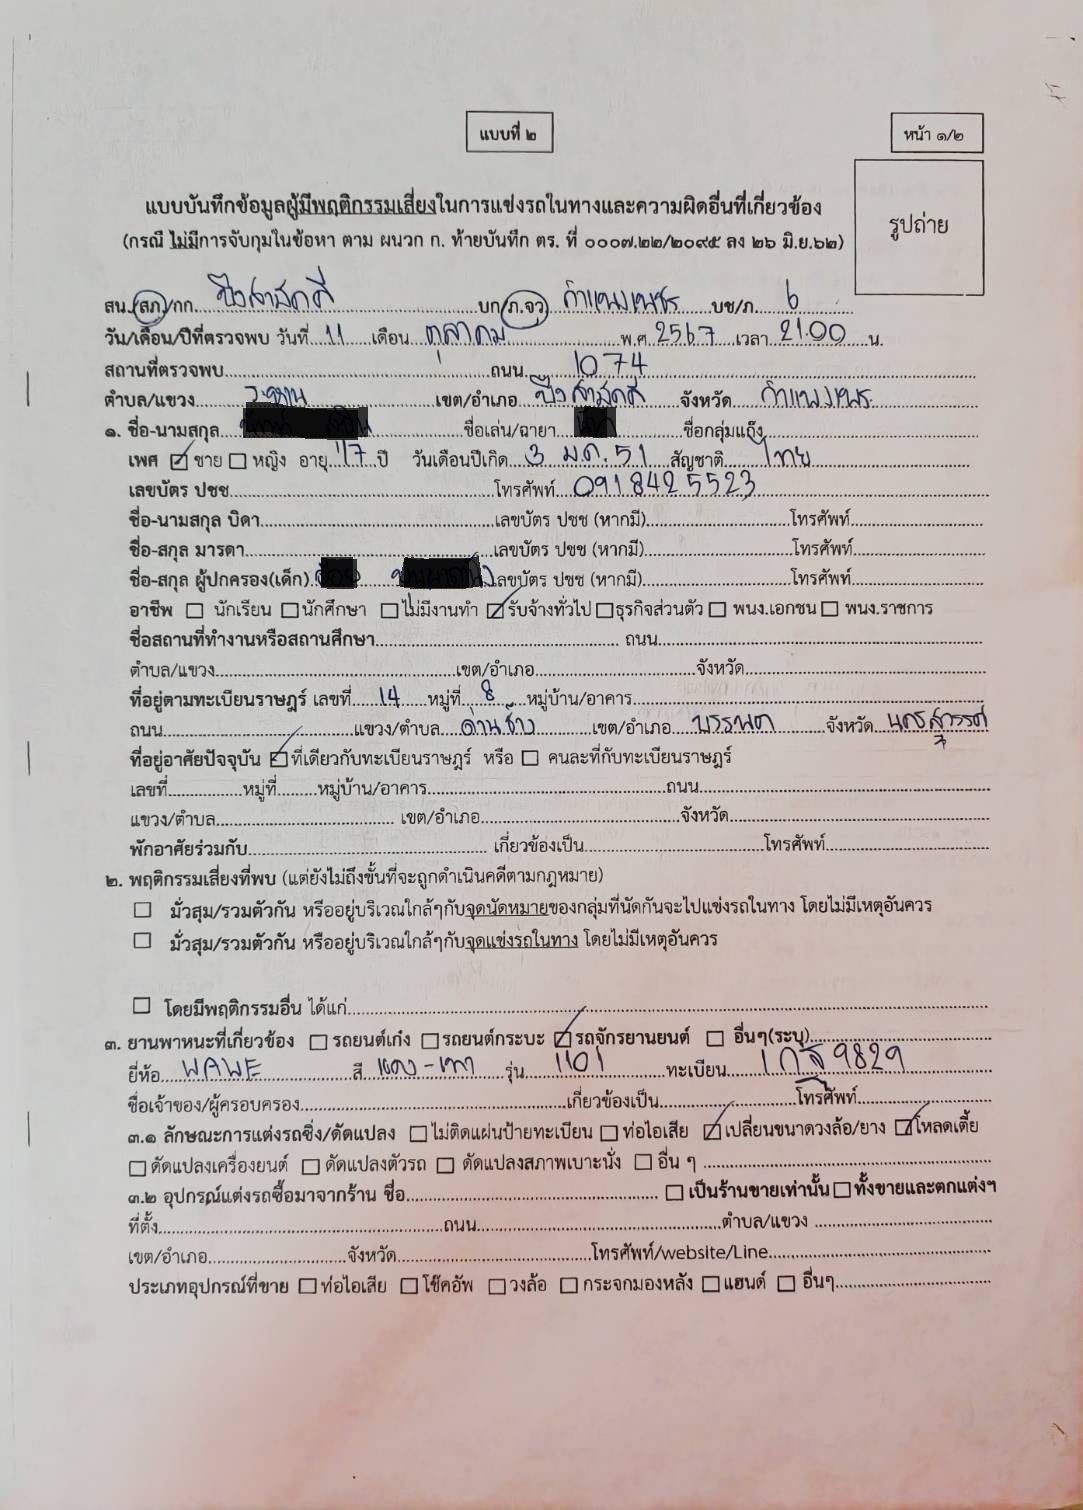 แบบที่ ๒
หน้า ๑/๒
แบบบันทึกข้อมูลผู้มีพฤติกรรมเสี่ยงในการแข่งรถในทางและความผิดอื่นที่เกี่ยวข้อง
(กรณี ไม่มีการจับกุมในข้อหา ตาม ผนวก ก. ท้ายบันทึก ตร. ที่ ๐๐๐๗.๒๒/๒๐๙๕ ลง ๒๖ มิ.ย.๖๒)
รูปถ่าย
สน./สภ./กก. บึงสามัคคี บก/ภ.จว. กำแพงเพชร บช/ภ. 6
วัน/เดือน/ปีที่ตรวจพบ วันที่ 11 เดือน ตุลาคม พ.ศ. 2567 เวลา 21.00 น.
สถานที่ตรวจพบ ถนน 1074
ตำบล/แขวง เขต/อำเภอ บึงสามัคคี จังหวัด กำแพงเพชร
๑. ชื่อ-นามสกุล ชื่อเล่น/ฉายา ชื่อกลุ่มแก๊ง
เพศ ☑ ชาย ☐ หญิง อายุ 17 ปี วันเดือนปีเกิด 3 ม.ค. 51 สัญชาติ ไทย
เลขบัตร ปชช. โทรศัพท์ 0918425523
ชื่อ-นามสกุล บิดา เลขบัตร ปชช (หากมี) โทรศัพท์
ชื่อ-สกุล มารดา เลขบัตร ปชช (หากมี) โทรศัพท์
ชื่อ-สกุล ผู้ปกครอง(เด็ก) เลขบัตร ปชช (หากมี) โทรศัพท์
อาชีพ ☐ นักเรียน ☐ นักศึกษา ☐ ไม่มีงานทำ ☑ รับจ้างทั่วไป ☐ ธุรกิจส่วนตัว ☐ พนง.เอกชน ☐ พนง.ราชการ
ชื่อสถานที่ทำงานหรือสถานศึกษา ถนน
ตำบล/แขวง เขต/อำเภอ จังหวัด
ที่อยู่ตามทะเบียนราษฎร์ เลขที่ 14 หมู่ที่ 8 หมู่บ้าน/อาคาร
ถนน แขวง/ตำบล ด่านช้าง เขต/อำเภอ บรรพต จังหวัด นครสวรรค์
ที่อยู่อาศัยปัจจุบัน ☑ ที่เดียวกับทะเบียนราษฎร์ หรือ ☐ คนละที่กับทะเบียนราษฎร์
เลขที่ หมู่ที่ หมู่บ้าน/อาคาร ถนน
แขวง/ตำบล เขต/อำเภอ จังหวัด
พักอาศัยร่วมกับ เกี่ยวข้องเป็น โทรศัพท์
๒. พฤติกรรมเสี่ยงที่พบ (แต่ยังไม่ถึงขั้นที่จะถูกดำเนินคดีตามกฎหมาย)
☐ มั่วสุม/รวมตัวกัน หรืออยู่บริเวณใกล้ๆกับจุดนัดหมายของกลุ่มที่นัดกันจะไปแข่งรถในทาง โดยไม่มีเหตุอันควร
☐ มั่วสุม/รวมตัวกัน หรืออยู่บริเวณใกล้ๆกับจุดแข่งรถในทาง โดยไม่มีเหตุอันควร
☐ โดยมีพฤติกรรมอื่น ได้แก่
๓. ยานพาหนะที่เกี่ยวข้อง ☐ รถยนต์เก๋ง ☐ รถยนต์กระบะ ☑ รถจักรยานยนต์ ☐ อื่นๆ(ระบุ)
ยี่ห้อ WAVE สี แดง-เทา รุ่น 110i ทะเบียน 1 กจ 9829
ชื่อเจ้าของ/ผู้ครอบครอง เกี่ยวข้องเป็น โทรศัพท์
๓.๑ ลักษณะการแต่งรถซิ่ง/ดัดแปลง ☐ ไม่ติดแผ่นป้ายทะเบียน ☐ ท่อไอเสีย ☑ เปลี่ยนขนาดวงล้อ/ยาง ☑ โหลดเตี้ย
☐ ดัดแปลงเครื่องยนต์ ☐ ดัดแปลงตัวรถ ☐ ดัดแปลงสภาพเบาะนั่ง ☐ อื่น ๆ
๓.๒ อุปกรณ์แต่งรถซื้อมาจากร้าน ชื่อ ☐ เป็นร้านขายเท่านั้น ☐ ทั้งขายและตกแต่งฯ
ที่ตั้ง ถนน ตำบล/แขวง
เขต/อำเภอ จังหวัด โทรศัพท์/website/Line
ประเภทอุปกรณ์ที่ขาย ☐ ท่อไอเสีย ☐ โช๊คอัพ ☐ วงล้อ ☐ กระจกมองหลัง ☐ แฮนด์ ☐ อื่นๆ